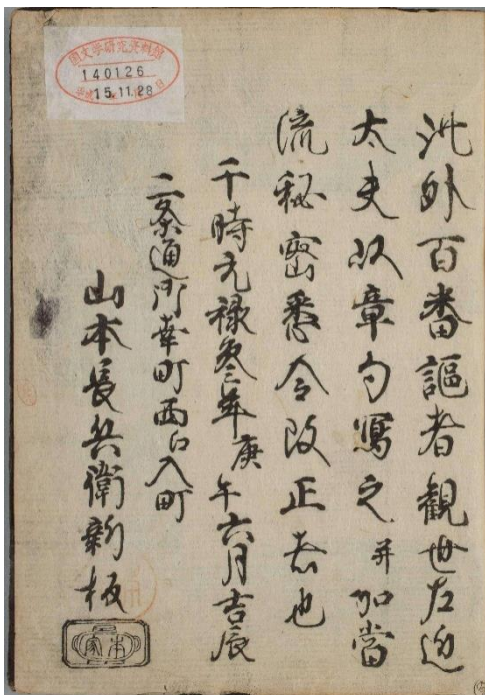 國文学研究資料館
140126
15.11.28
此外百番謳者觀世左近
太夫以章句寫之并加當
流秘密悉令改正者也
于時元禄参年庚午六月吉辰
二条通御幸町西江入町
山本長兵衛新板
本家